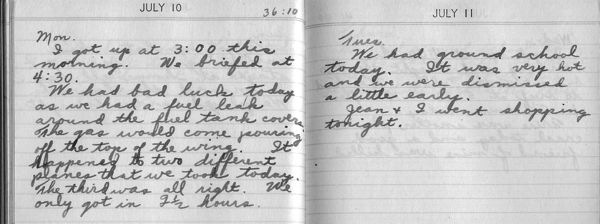 JULY 10
36:10
Mon.
I got up at 3:00 this
morning. We briefed at
4:30.
We had bad luck today
as we had a fuel leak
around the fuel tank covers.
The gas would come pouring
off the top of the wing. It
happened to two different
planes that we took today.
The third was all right. We
only got in 2½ hours.
JULY 11
Tues.
We had ground school
today. It was very hot
and we were dismissed
a little early.
Jean & I went shopping
tonight.